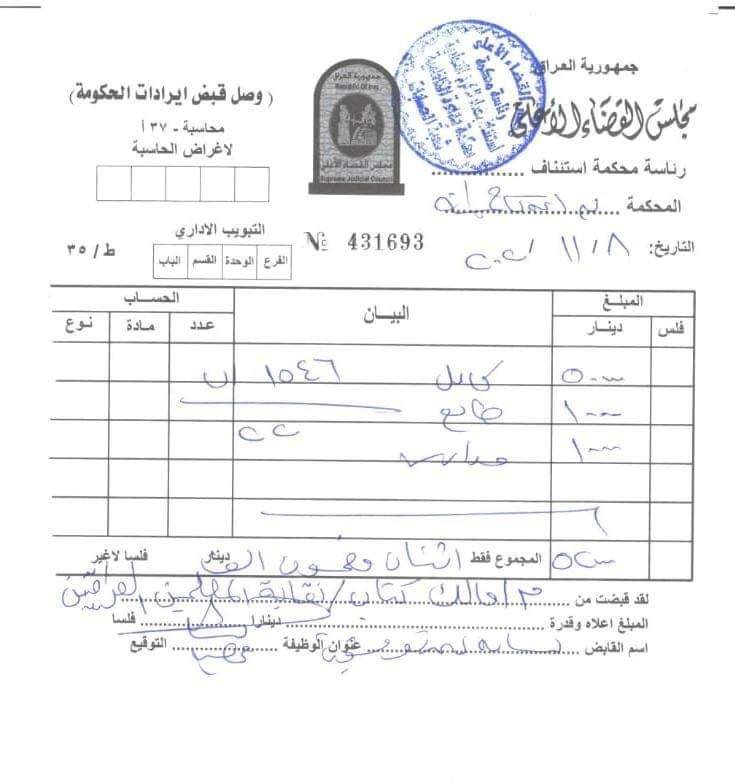 جمهورية العراق
مجلس القضاء الأعلى
رئاسة محكمة استئناف ................
المحكمة
التاريخ: ٨ / ١١ / ٢٠٢٢
جمهورية العراق
Republic Of Iraq
مجلس القضاء الأعلى
Supreme Judicial Council
( وصل قبض ايرادات الحكومة )
محاسبة - ٣٧ أ
لاغراض الحاسبة
التبويب الاداري
الفرع الوحدة القسم الباب
№ 431693
ط / ٣٥
المبلغ البيان الحساب
فلس دينار عدد مادة نوع
٥٠٠٠٠ ١٥٤٦
١٠٠٠ طابع
١٠٠٠ ٢٢
٥٢٠٠٠ المجموع فقط اثنان وخمسون الف دينار فلسا لاغير
لقد قبضت من / نقابة المعلمين العراقيين
المبلغ اعلاه وقدرة دينارا فلسا
اسم القابض عنوان الوظيفة التوقيع